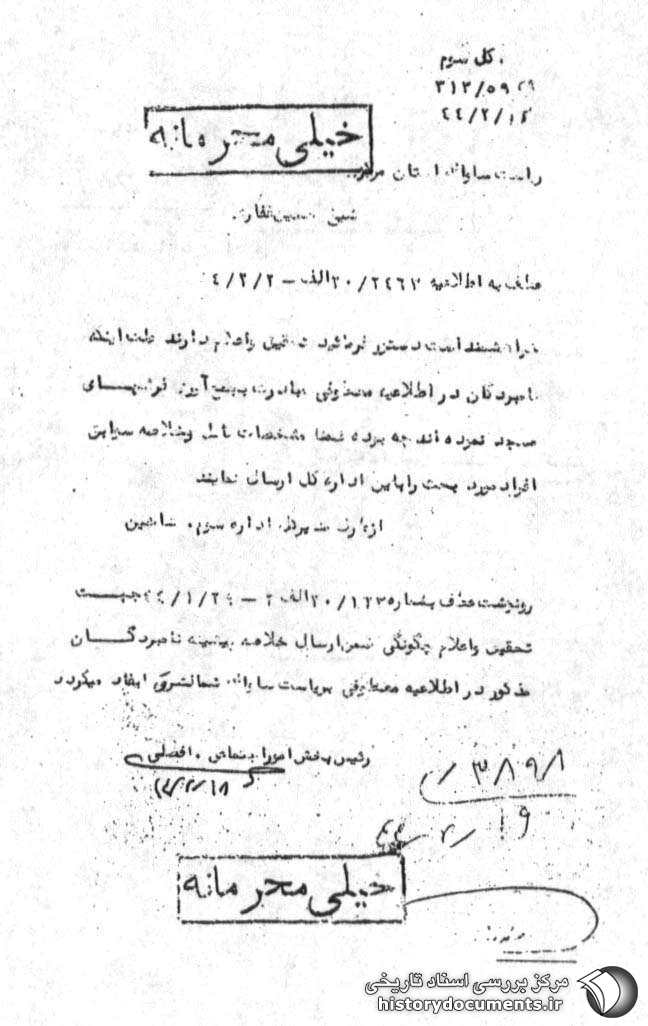 کل سوم
۳۱۲/۵۹
۴۴/۲/۱۴
خیلی محرمانه
ریاست ساواک استان مرکز
شیخ حسین غفاری
عطف به اطلاعیه ۲۰/۲۴۶۲الف – ۴/۲/۲
خواهشمند است دستور فرمائید تحقیق و اعلام دارند علت اینکه
نامبردگان در اطلاعیه معطوفی مبادرت بجمع‌آوری فرشهای
مسجد نموده‌اند چه بوده ضمنا مشخصات کامل و خلاصه سوابق
افراد مورد بحث را باین اداره کل ارسال نمایند
از طرف مدیرکل اداره سوم.
رونوشت عطف بشماره ۲۰/۱۲۳الف ۲ – ۴۴/۱/۲۹ جهت
تحقیق و اعلام چگونگی ضمن ارسال خلاصه پیشینه نامبردگان
مذکور در اطلاعیه معطوفی بریاست ساواک شمالشرق ایفاد میگردد
رئیس بخش امور اجتماعی . افضلی
۴۴/۲/۱۸
۳۸۹۸/
۱۹/۲/۴۴
خیلی محرمانه
مرکز بررسی اسناد تاریخی
historydocuments.ir